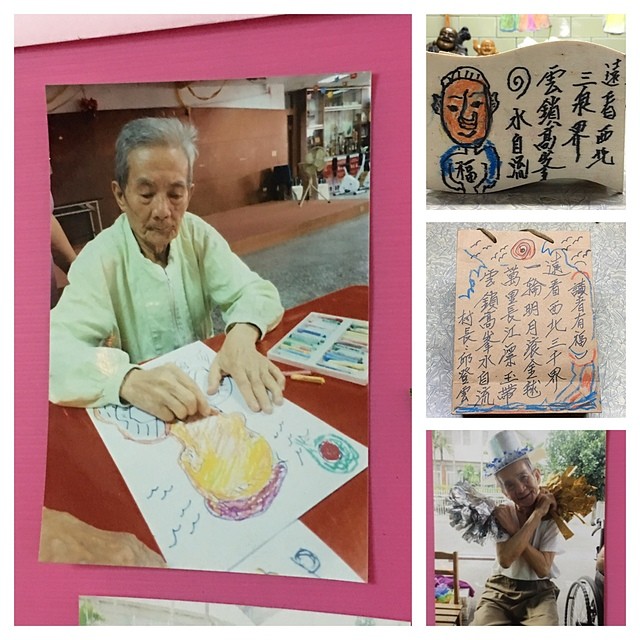 遠看西北
界
雲鎖高峯
水自
福
讀者有福
遠看西北三千界
一輪明月滾金
萬里長江 玉帶
雲鎖高峯水自流
村長:邱登雲